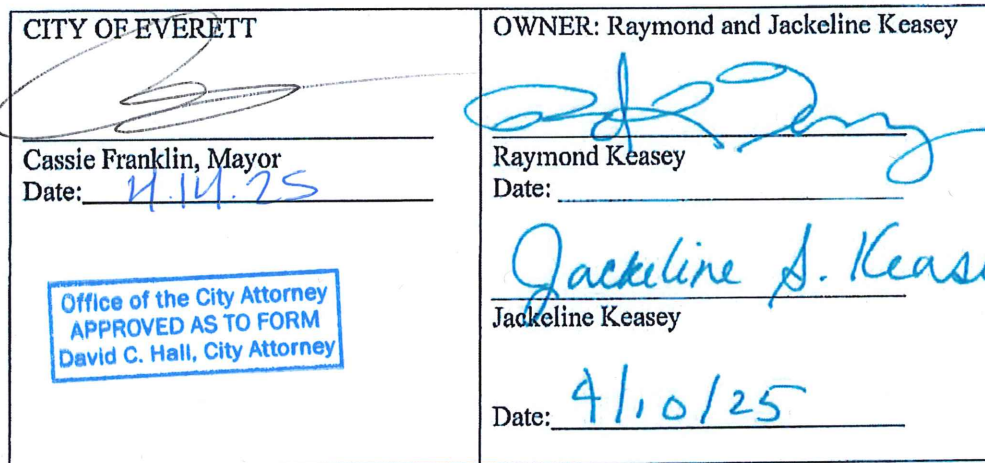 CITY OF EVERETT
Cassie Franklin, Mayor
Date: 4.14.25
Office of the City Attorney
APPROVED AS TO FORM
David C. Hall, City Attorney
OWNER: Raymond and Jackeline Keasey
Raymond Keasey
Date:
Jackeline S. Keas
Jackeline Keasey
Date: 4/10/25